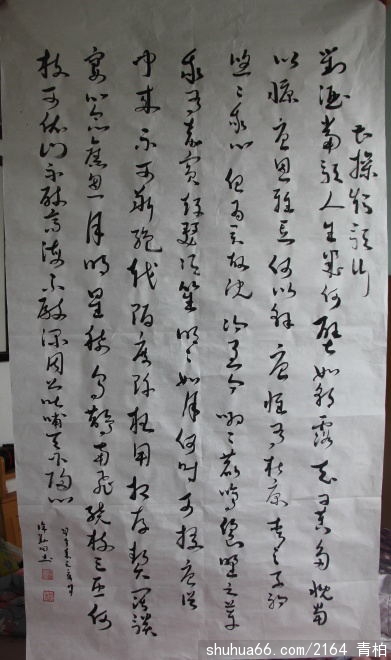 曹操短歌行
對酒當歌人生幾何譬如朝露去日苦多慨當
以慷憂思難忘何以解憂惟有杜康青〻子衿
悠〻我心但為君故沉吟至今呦〻鹿鳴食野之苹
我有嘉賓鼓瑟吹笙明〻如月何時可掇憂從
中來不可斷絕越陌度阡枉用相存契闊談
宴心念舊恩月明星稀烏鵲南飛繞樹三匝何
枝可依山不厭高海不厭深周公吐哺天下歸心
shuhua66.com/2164 青柏